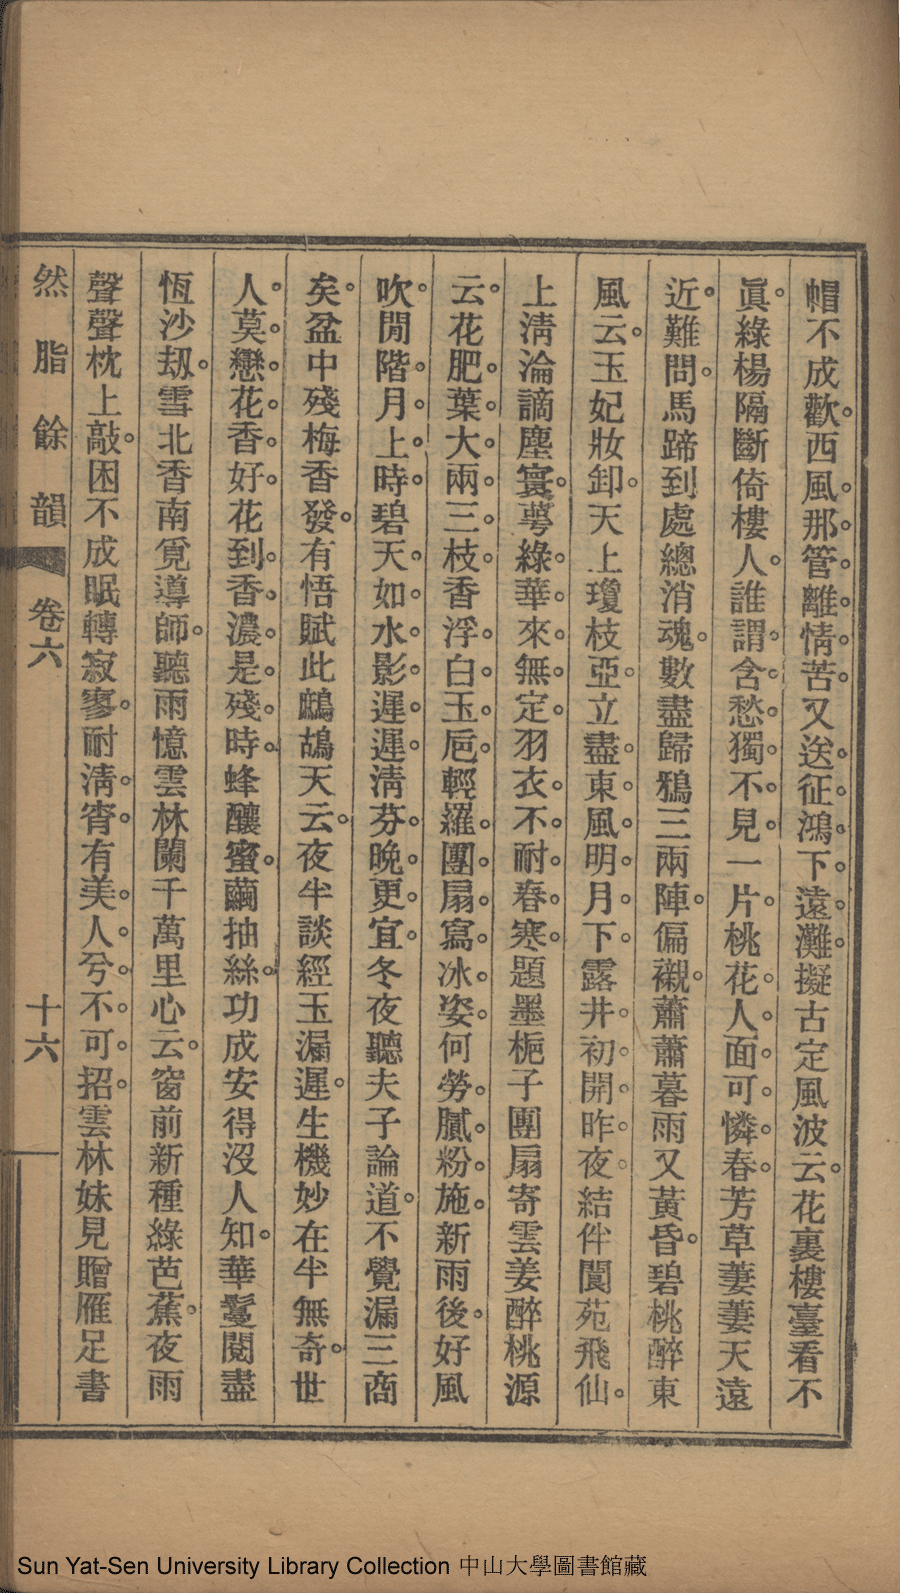 帽不成歡西風那管離情苦又送征鴻下遠灘擬古定風波云花裏樓臺看不
眞綠楊隔斷倚樓人誰謂含愁獨不見一片桃花人面可憐春芳草萋萋天遠
近難問馬蹄到處總消魂數盡歸鴉三兩陣偏襯蕭蕭暮雨又黃昏碧桃醉東
風云玉妃妝卸天上瓊枝亞立盡東風明月下露井初開昨夜結伴閬苑飛仙
上淸淪謫塵寰萼綠華來無定羽衣不耐春寒題墨梔子團扇寄雲姜醉桃源
云花肥葉大兩三枝香浮白玉巵輕羅團扇寫冰姿何勞膩粉施新雨後好風
吹閒階月上時碧天如水影遲遲淸芬晚更宜冬夜聽夫子論道不覺漏三商
矣盆中殘梅香發有悟賦此鷓鴣天云夜半談經玉漏遲生機妙在半無奇世
人莫戀花香好花到香濃是殘時蜂釀蜜繭抽絲功成安得沒人知華鬘閱盡
恆沙刼雪北香南覓導師聽雨憶雲林闌千萬里心云窗前新種綠芭蕉夜雨
聲聲枕上敲困不成眠轉寂寥耐淸宵有美人兮不可招雲林妹見贈雁足書
然脂餘韻
卷六
十六
Sun Yat-Sen University Library Collection 中山大學圖書館藏